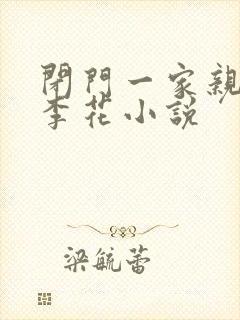 閉門一家親
李花小說
梁毓蕾